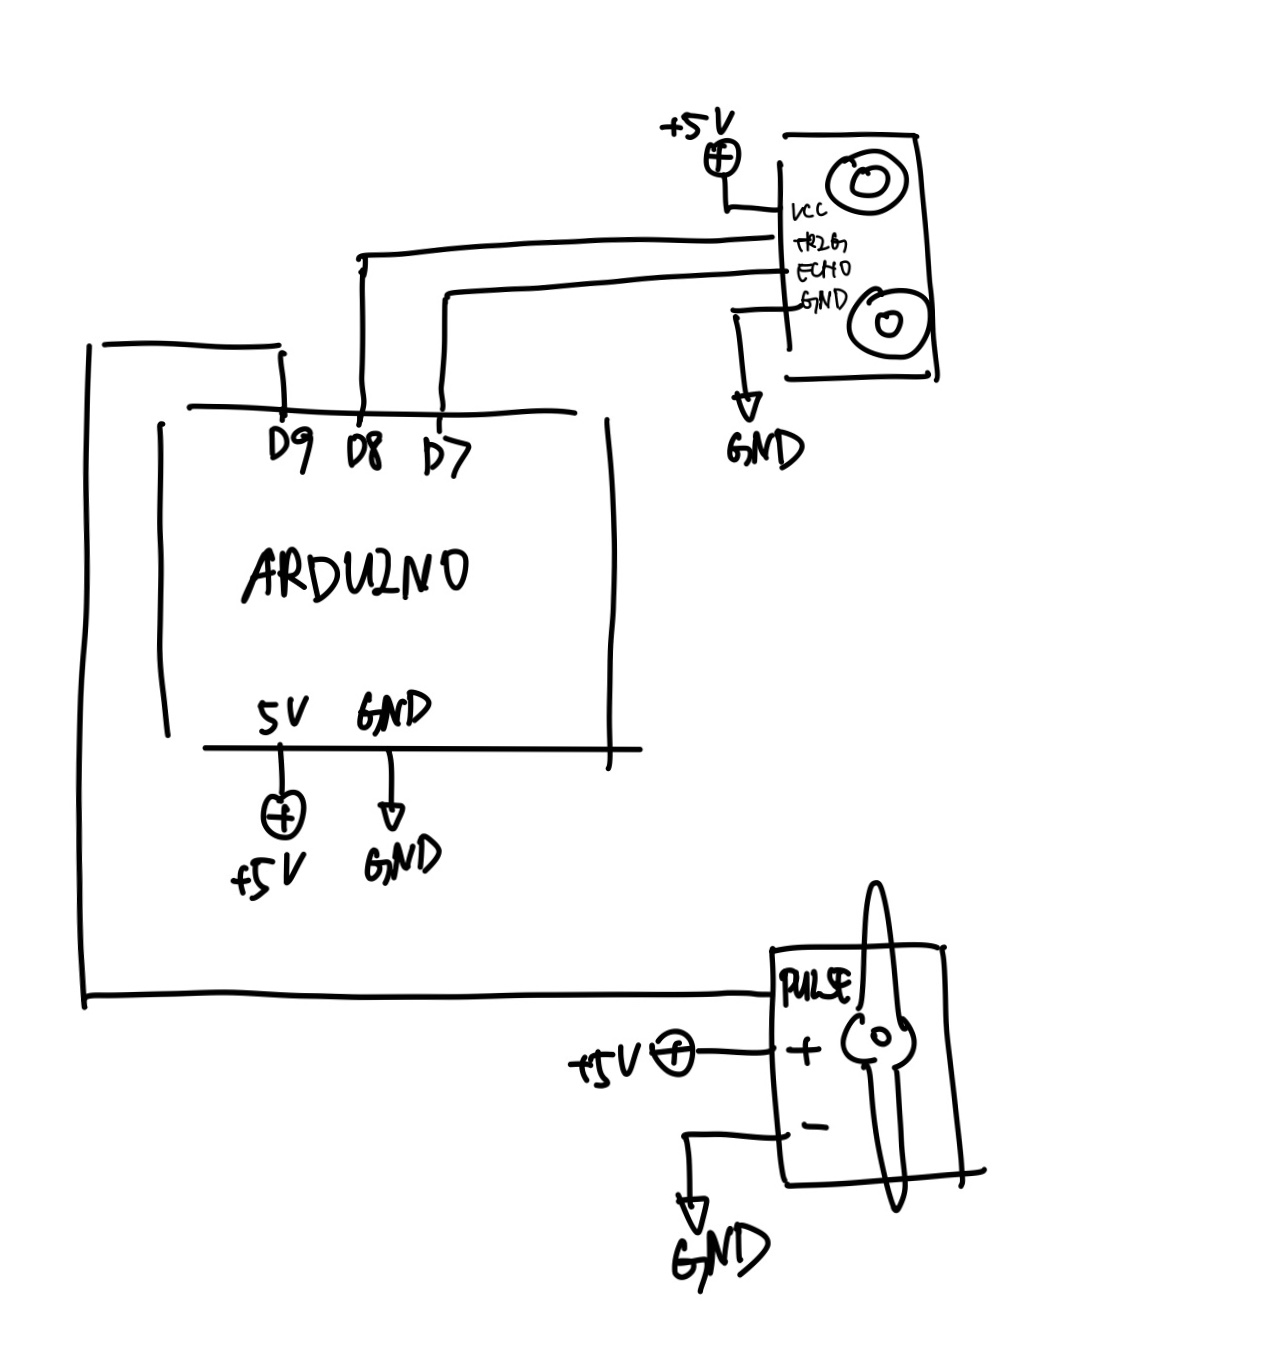 +5V
VCC
TR2G
ECHO
GND
GND
D9 D8 D7
ARDU2NO
5V GND
+5V GND
PULSE
+5V +
-
GND